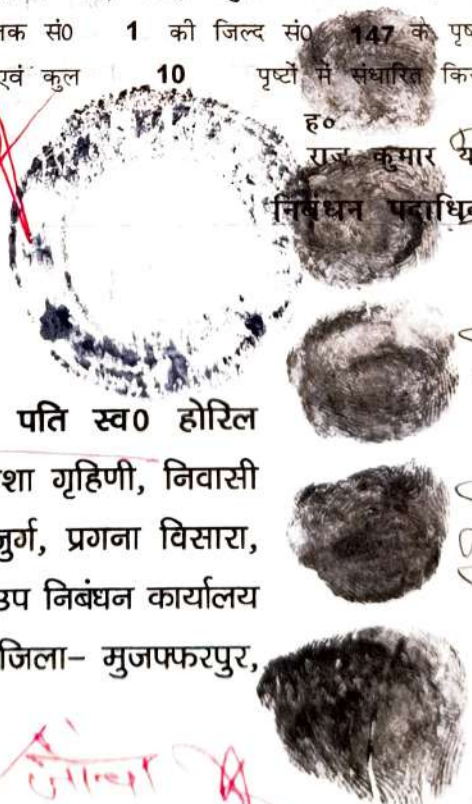 तक सं0 1 की जिल्द सं0 147 के पृष
एवं कुल 10 पृष्टों में संधारित कि
ह०
राज कुमार य
निबंधन पदाधि
पति स्व0 होरिल
शा गृहिणी, निवासी
जुर्ग, प्रगना विसारा,
उप निबंधन कार्यालय
जिला- मुजफ्फरपुर,